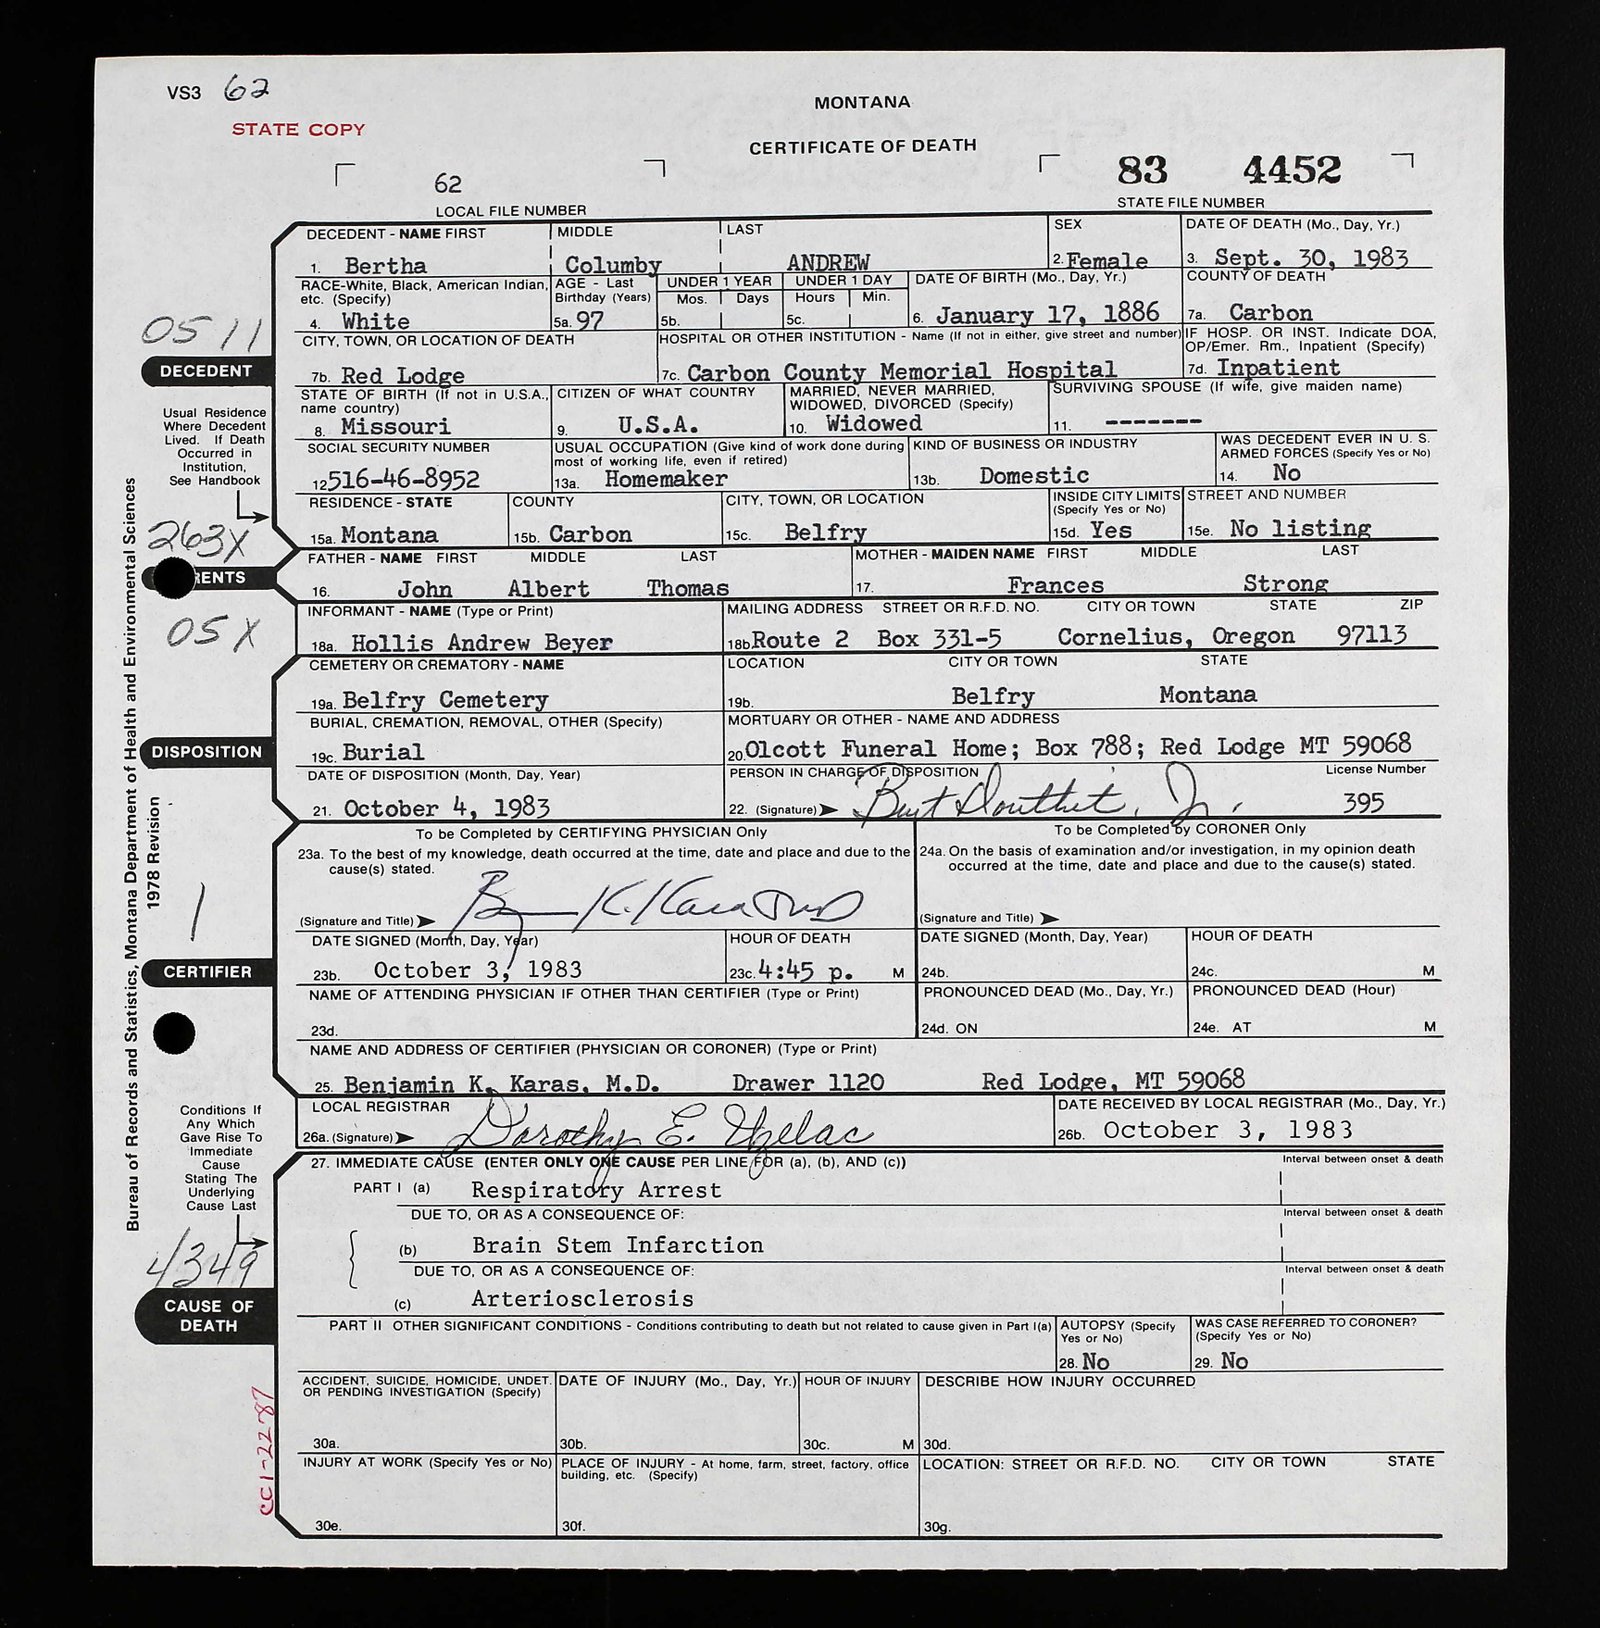 VS3 62
STATE COPY
MONTANA
CERTIFICATE OF DEATH
62
LOCAL FILE NUMBER
83 4452
STATE FILE NUMBER
DECEDENT - NAME FIRST MIDDLE LAST SEX DATE OF DEATH (Mo., Day, Yr.)
1. Bertha Columby ANDREW 2. Female 3. Sept. 30, 1983
RACE-White, Black, American Indian, etc. (Specify) AGE - Last Birthday (Years) UNDER 1 YEAR UNDER 1 DAY DATE OF BIRTH (Mo., Day, Yr.) COUNTY OF DEATH
Mos. Days Hours Min.
4. White 5a. 97 5b. 5c. 6. January 17, 1886 7a. Carbon
0511
CITY, TOWN, OR LOCATION OF DEATH HOSPITAL OR OTHER INSTITUTION - Name (If not in either, give street and number) IF HOSP. OR INST. Indicate DOA, OP/Emer. Rm., Inpatient (Specify)
DECEDENT
7b. Red Lodge 7c. Carbon County Memorial Hospital 7d. Inpatient
STATE OF BIRTH (If not in U.S.A., name country) CITIZEN OF WHAT COUNTRY MARRIED, NEVER MARRIED, WIDOWED, DIVORCED (Specify) SURVIVING SPOUSE (If wife, give maiden name)
8. Missouri 9. U.S.A. 10. Widowed 11. -------
Usual Residence
Where Decedent
Lived. If Death
Occurred in
Institution,
See Handbook
SOCIAL SECURITY NUMBER USUAL OCCUPATION (Give kind of work done during most of working life, even if retired) KIND OF BUSINESS OR INDUSTRY WAS DECEDENT EVER IN U. S. ARMED FORCES (Specify Yes or No)
12. 516-46-8952 13a. Homemaker 13b. Domestic 14. No
RESIDENCE - STATE COUNTY CITY, TOWN, OR LOCATION INSIDE CITY LIMITS (Specify Yes or No) STREET AND NUMBER
15a. Montana 15b. Carbon 15c. Belfry 15d. Yes 15e. No listing
263X
FATHER - NAME FIRST MIDDLE LAST MOTHER - MAIDEN NAME FIRST MIDDLE LAST
RENTS
16. John Albert Thomas 17. Frances Strong
05X
INFORMANT - NAME (Type or Print) MAILING ADDRESS STREET OR R.F.D. NO. CITY OR TOWN STATE ZIP
18a. Hollis Andrew Beyer 18b. Route 2 Box 331-5 Cornelius, Oregon 97113
CEMETERY OR CREMATORY - NAME LOCATION CITY OR TOWN STATE
19a. Belfry Cemetery 19b. Belfry Montana
BURIAL, CREMATION, REMOVAL, OTHER (Specify) MORTUARY OR OTHER - NAME AND ADDRESS
DISPOSITION
19c. Burial 20. Olcott Funeral Home; Box 788; Red Lodge MT 59068
DATE OF DISPOSITION (Month, Day, Year) PERSON IN CHARGE OF DISPOSITION License Number
21. October 4, 1983 22. (Signature) Burt Douthit, Jr. 395
To be Completed by CERTIFYING PHYSICIAN Only To be Completed by CORONER Only
23a. To the best of my knowledge, death occurred at the time, date and place and due to the cause(s) stated.
24a. On the basis of examination and/or investigation, in my opinion death occurred at the time, date and place and due to the cause(s) stated.
1
(Signature and Title) K. Karas MD (Signature and Title)
DATE SIGNED (Month, Day, Year) HOUR OF DEATH DATE SIGNED (Month, Day, Year) HOUR OF DEATH
CERTIFIER
23b. October 3, 1983 23c. 4:45 p. M 24b. 24c. M
NAME OF ATTENDING PHYSICIAN IF OTHER THAN CERTIFIER (Type or Print) PRONOUNCED DEAD (Mo., Day, Yr.) PRONOUNCED DEAD (Hour)
23d. 24d. ON 24e. AT M
NAME AND ADDRESS OF CERTIFIER (PHYSICIAN OR CORONER) (Type or Print)
25. Benjamin K. Karas, M.D. Drawer 1120 Red Lodge, MT 59068
LOCAL REGISTRAR DATE RECEIVED BY LOCAL REGISTRAR (Mo., Day, Yr.)
26a. (Signature) Dorothy E. Uzelac 26b. October 3, 1983
Conditions If
Any Which
Gave Rise To
Immediate
Cause
Stating The
Underlying
Cause Last
27. IMMEDIATE CAUSE (ENTER ONLY ONE CAUSE PER LINE FOR (a), (b), AND (c)) Interval between onset & death
PART I (a) Respiratory Arrest
DUE TO, OR AS A CONSEQUENCE OF: Interval between onset & death
(b) Brain Stem Infarction
DUE TO, OR AS A CONSEQUENCE OF: Interval between onset & death
4349
(c) Arteriosclerosis
CAUSE OF
DEATH
PART II OTHER SIGNIFICANT CONDITIONS - Conditions contributing to death but not related to cause given in Part I(a) AUTOPSY (Specify Yes or No) WAS CASE REFERRED TO CORONER? (Specify Yes or No)
28. No 29. No
ACCIDENT, SUICIDE, HOMICIDE, UNDET. OR PENDING INVESTIGATION (Specify) DATE OF INJURY (Mo., Day, Yr.) HOUR OF INJURY DESCRIBE HOW INJURY OCCURRED
30a. 30b. 30c. M 30d.
INJURY AT WORK (Specify Yes or No) PLACE OF INJURY - At home, farm, street, factory, office building, etc. (Specify) LOCATION: STREET OR R.F.D. NO. CITY OR TOWN STATE
30e. 30f. 30g.
Bureau of Records and Statistics, Montana Department of Health and Environmental Sciences
1978 Revision
CC1-22-87